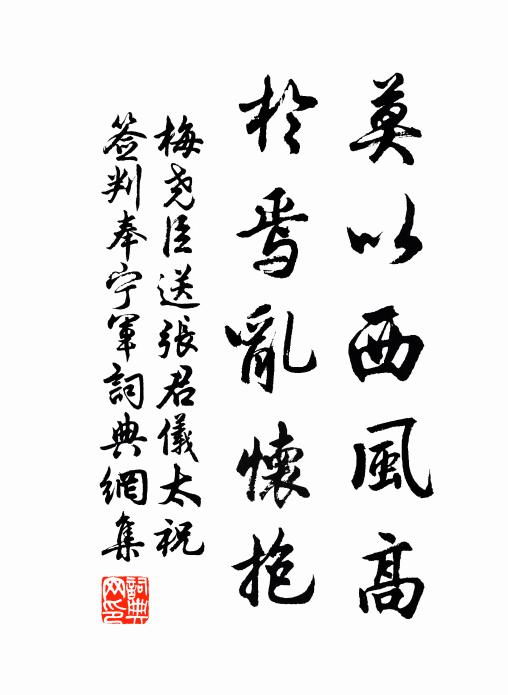 莫以西風高
於焉亂懷抱
梅尧臣送張君儀太祝
签判奉宁軍詞典網集
詞典
网印